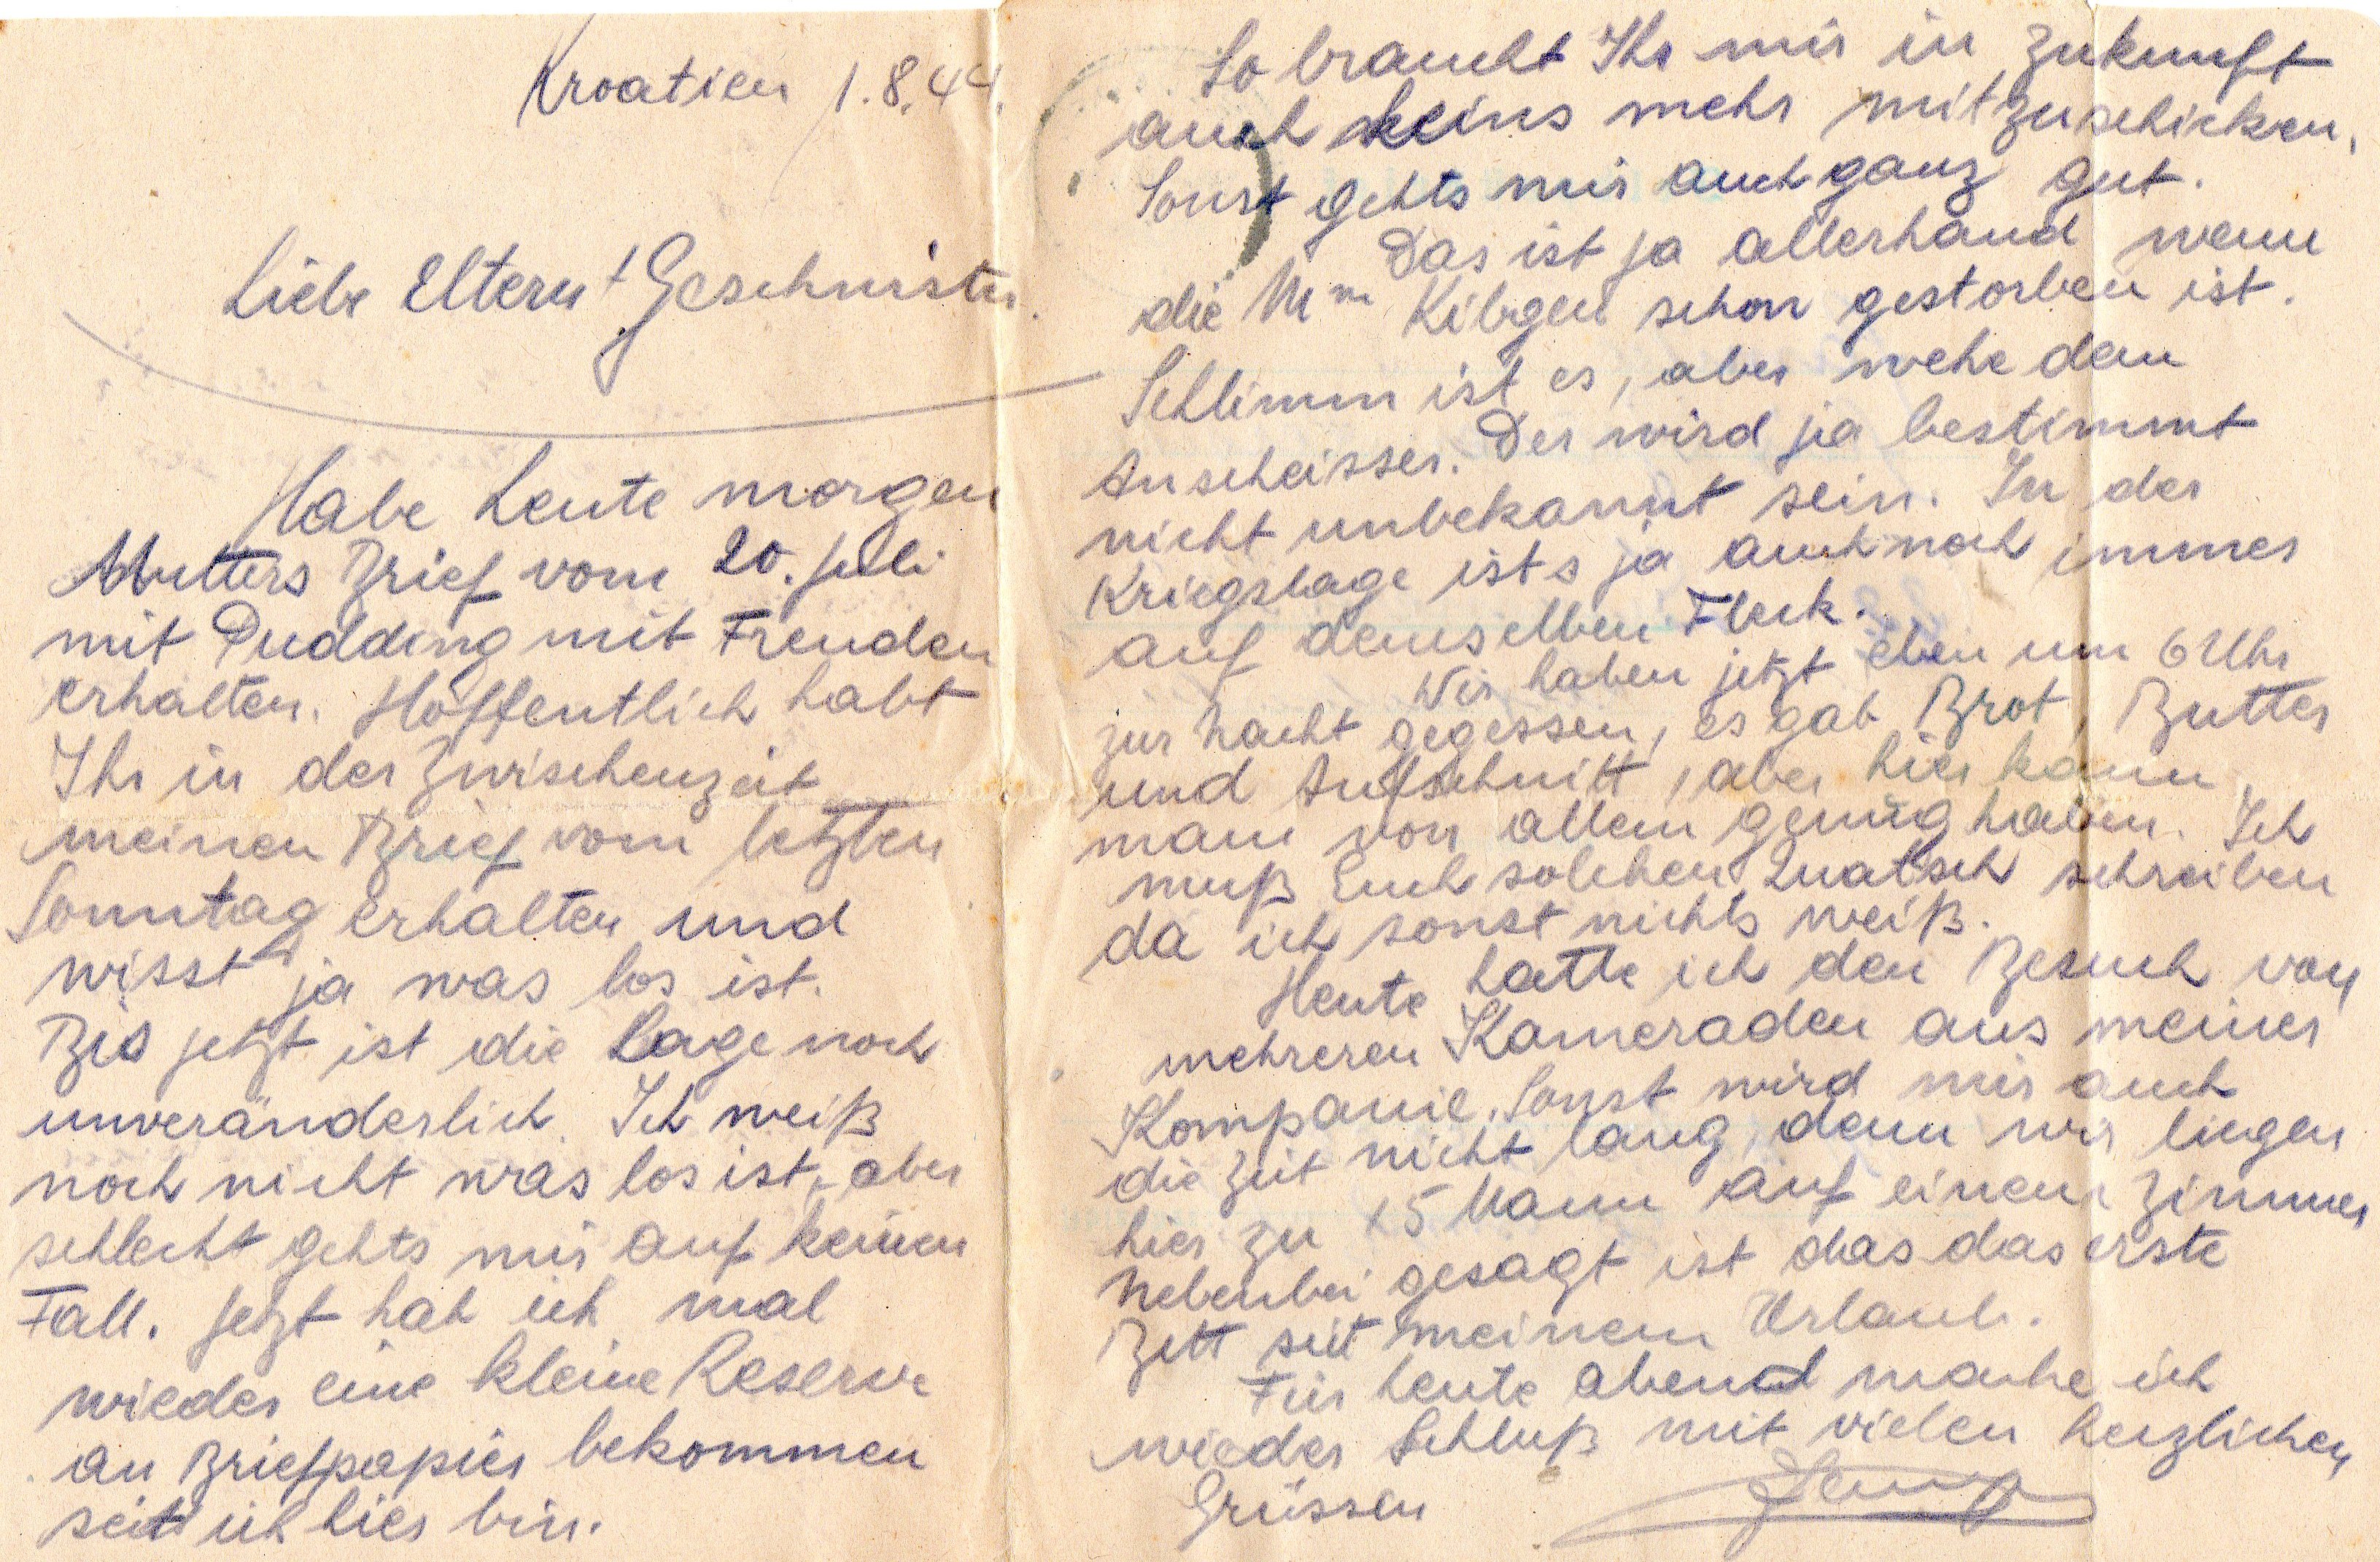 Kroatien 1.8.44.
Liebe Eltern + Geschwister.
Habe heute morgen
Mutters Brief vom 20. Juli
mit Pudding mit Freuden
erhalten. Hoffentlich habt
Ihr in der Zwischenzeit
meinen Brief vom letzten
Sonntag erhalten und
wisst ja was los ist.
Bis jetzt ist die Lage noch
unveränderlich. Ich weiß
noch nicht was los ist, aber
schlecht gehts mir auf keinen
Fall. Jetzt hab ich mal
wieder eine kleine Reserve
an Briefpapier bekommen
seit ich hier bin.
So braucht Ihr mir in Zukunft
auch keins mehr mitzuschicken,
Sonst gehts mir auch ganz gut.
Das ist ja allerhand wenn
die schon gestorben ist.
Schlimm ist es, aber wehe dem
Anscheisser. Der wird ja bestimmt
nicht unbekannt sein. In der
Kriegslage ists ja auch noch immer
auf demselben Fleck.
Wir haben jetzt eben um 6 Uhr
zur Nacht gegessen, es gab Brot, Butter
und Aufschnitt, aber hier kann
man von allem genug haben. Ich
muß Euch solchen Quatsch schreiben
da ich sonst nichts weiß.
Heute hatte ich den Besuch von
mehreren Kameraden aus meiner
Kompanie. Sonst wird mir auch
die Zeit nicht lang, denn wir liegen
hier zu 15 Mann auf einem Zimmer
Nebenbei gesagt ist das das erste
Bett seit meinem Urlaub.
Für heute abend mache ich
wieder Schluß mit vielen herzlichen
Grüssen